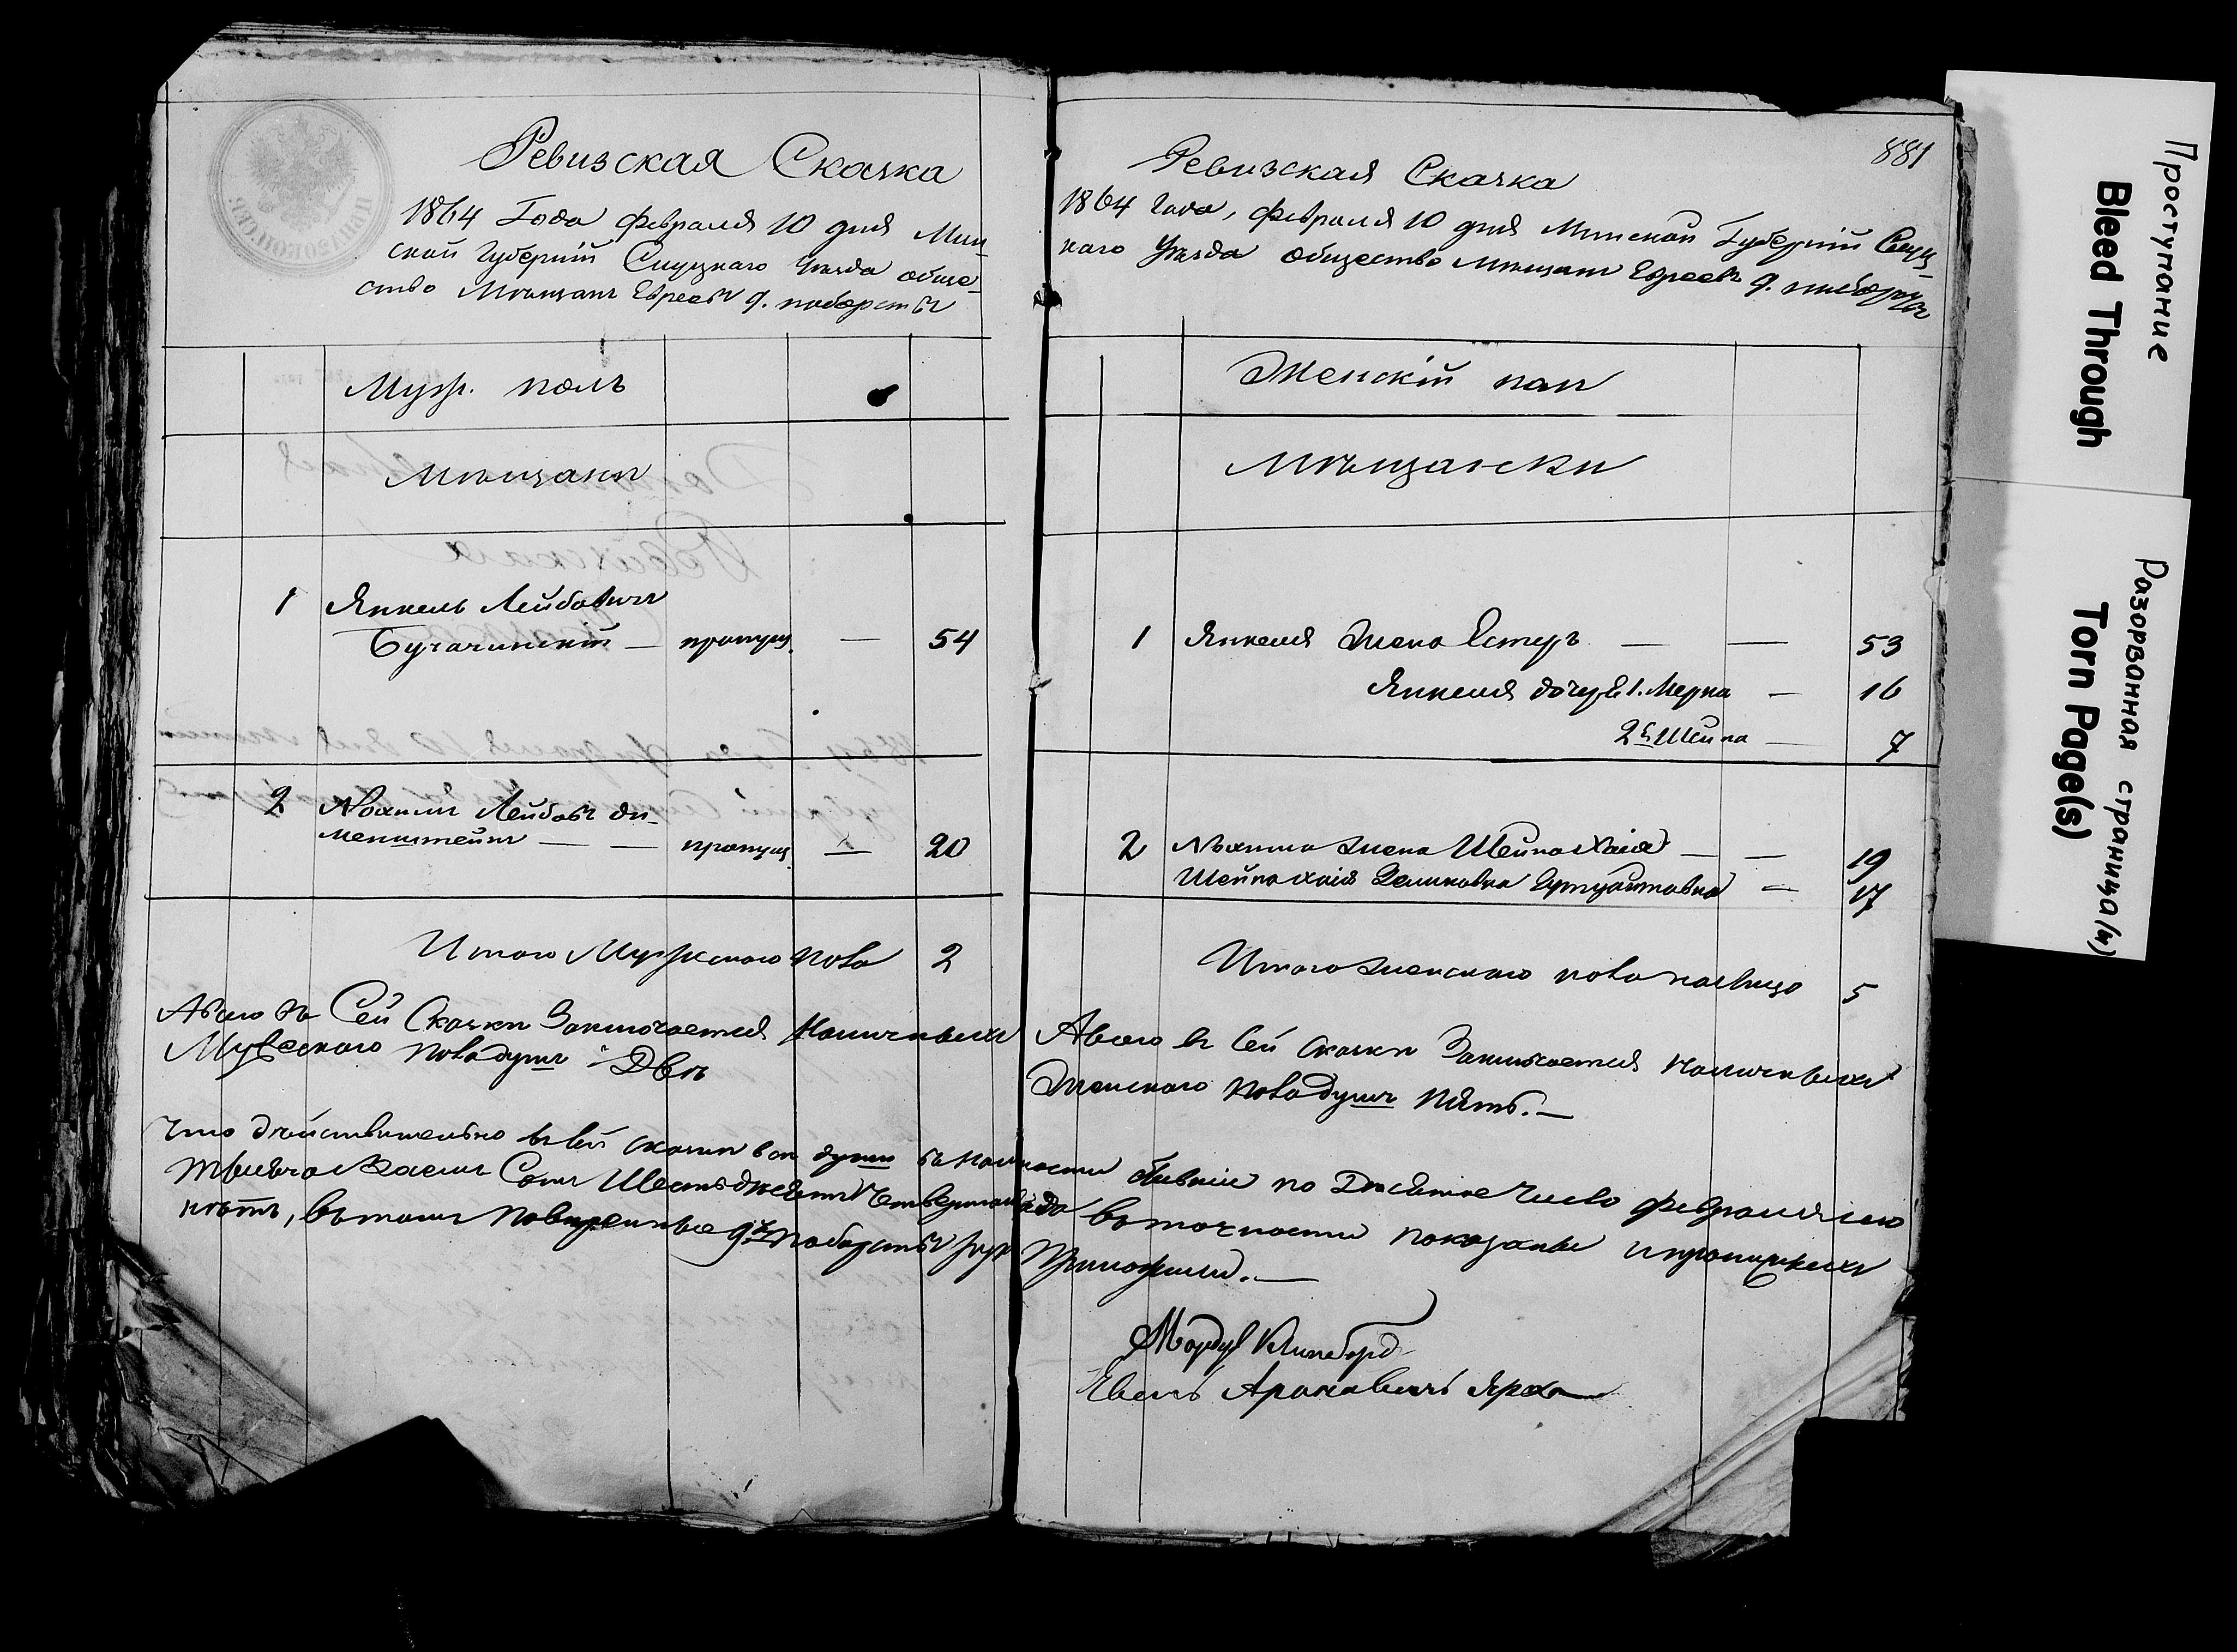 Ревизская Сказка
1864 Года февраля 10 дня Мин-
ской Губерніи Слуцкаго Уезда обще-
ство Мѣщанъ Евреевъ
Муж. полъ
Мѣщане
1 Янкель Лейбовичъ
Бугачинскій — пропущ. — 54
2 Нохимъ Лейбовъ Ди-
менштейнъ — — пропущ. — 20
Итого Мужскаго пола 2
А всего въ Сей Сказки Заключается Наличныхъ
Мужескаго пола душъ Двѣ
881
Ревизская Сказка
1864 Года, февраля 10 дня Минской Губерніи Слуц-
каго Уезда общество Мѣщанъ Евреевъ
Женскій пол
Мѣщански
1 Янкеля Жена Естеръ — — 53
Янкеля дочери 1. Мерка — 16
2я Шейна — 7
2 Нохима жена Шейна Хая — — 19
Шейна Хая Зеликовна — 17
Итого женскаго пола налицо 5
А всего въ Сей Сказки Заключается наличныхъ
Женскаго пола душъ Пять. —
Что действительно въ Сей сказки все души въ наличности бывшіе по Десятое Число февраля сего
Тысяча Восемь Сотъ Шестьдесятъ Четвертаго года въ точности показаны и пропущеныхъ
нѣтъ, въ томъ повѣренные
Мордух
Евель Ароновичъ
Проступание
Bleed Through
Разорванная страница(и)
Torn Page(s)